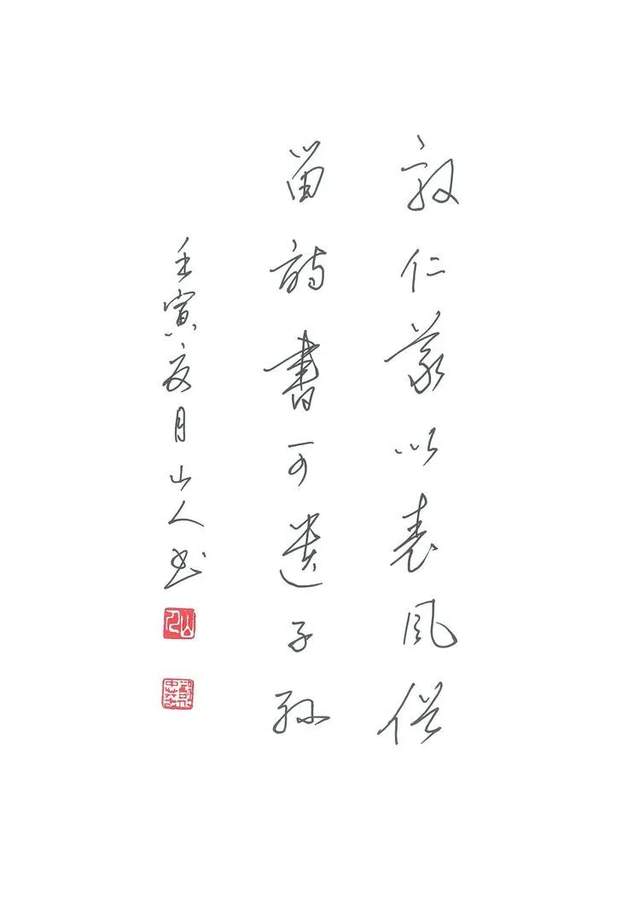 敦仁義以表風俗
留詩書可遺子孫
壬寅夏月山人书
山人